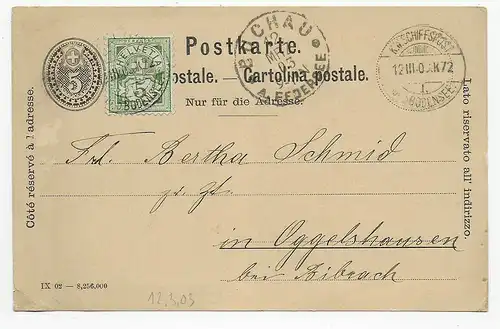 Postkarte.
postale. — Cartolina postale.
Nur für die Adresse.
HELVETIA
5
5
BODENSEE
BUCHAU
12
MRZ
03
A. FEDERSEE
K.W. SCHIFFSPOST
12 III 0 K72
BODENSEE
Côté réservé à l'adresse.
Lato riservato all' indirizzo.
Frl. Bertha Schmid
pr. Adr.
in Oggelshausen
bei Bibrach
IX 02 — 8,256.000
12.3.03